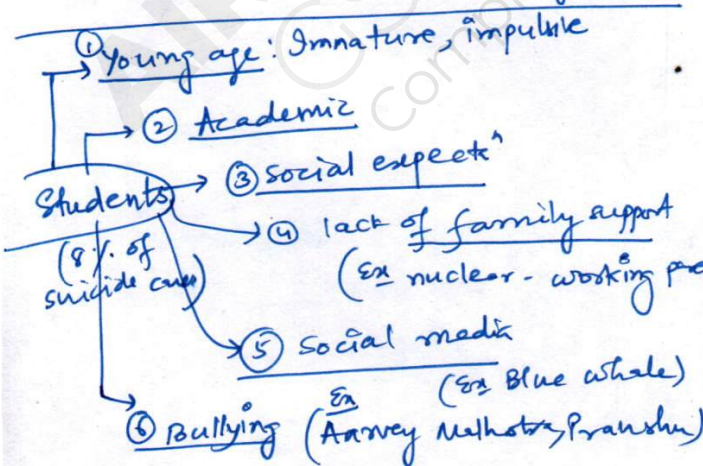 ① Young age : Immature, impulsive
② Academic
③ Social expectⁿ
Students
(8% of
suicide cases)
④ lack of family support
(Ex nuclear - working
⑤ Social media
(Ex Blue whale)
⑥ Bullying (Ex Aarvey Malhotra, Pranshu)